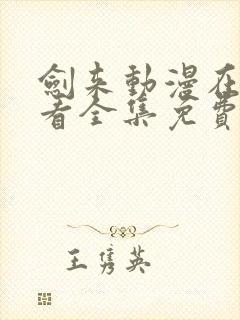 劍来動漫在
看全集免費
王雋英